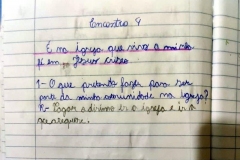 Encontro 9
É na igreja que vivo a minha
fé em Jesus Cristo
1- O que pretendo fazer para ser
parte da minha comunidade na igreja?
R- Pagar o dízimo ir a igreja e ir a